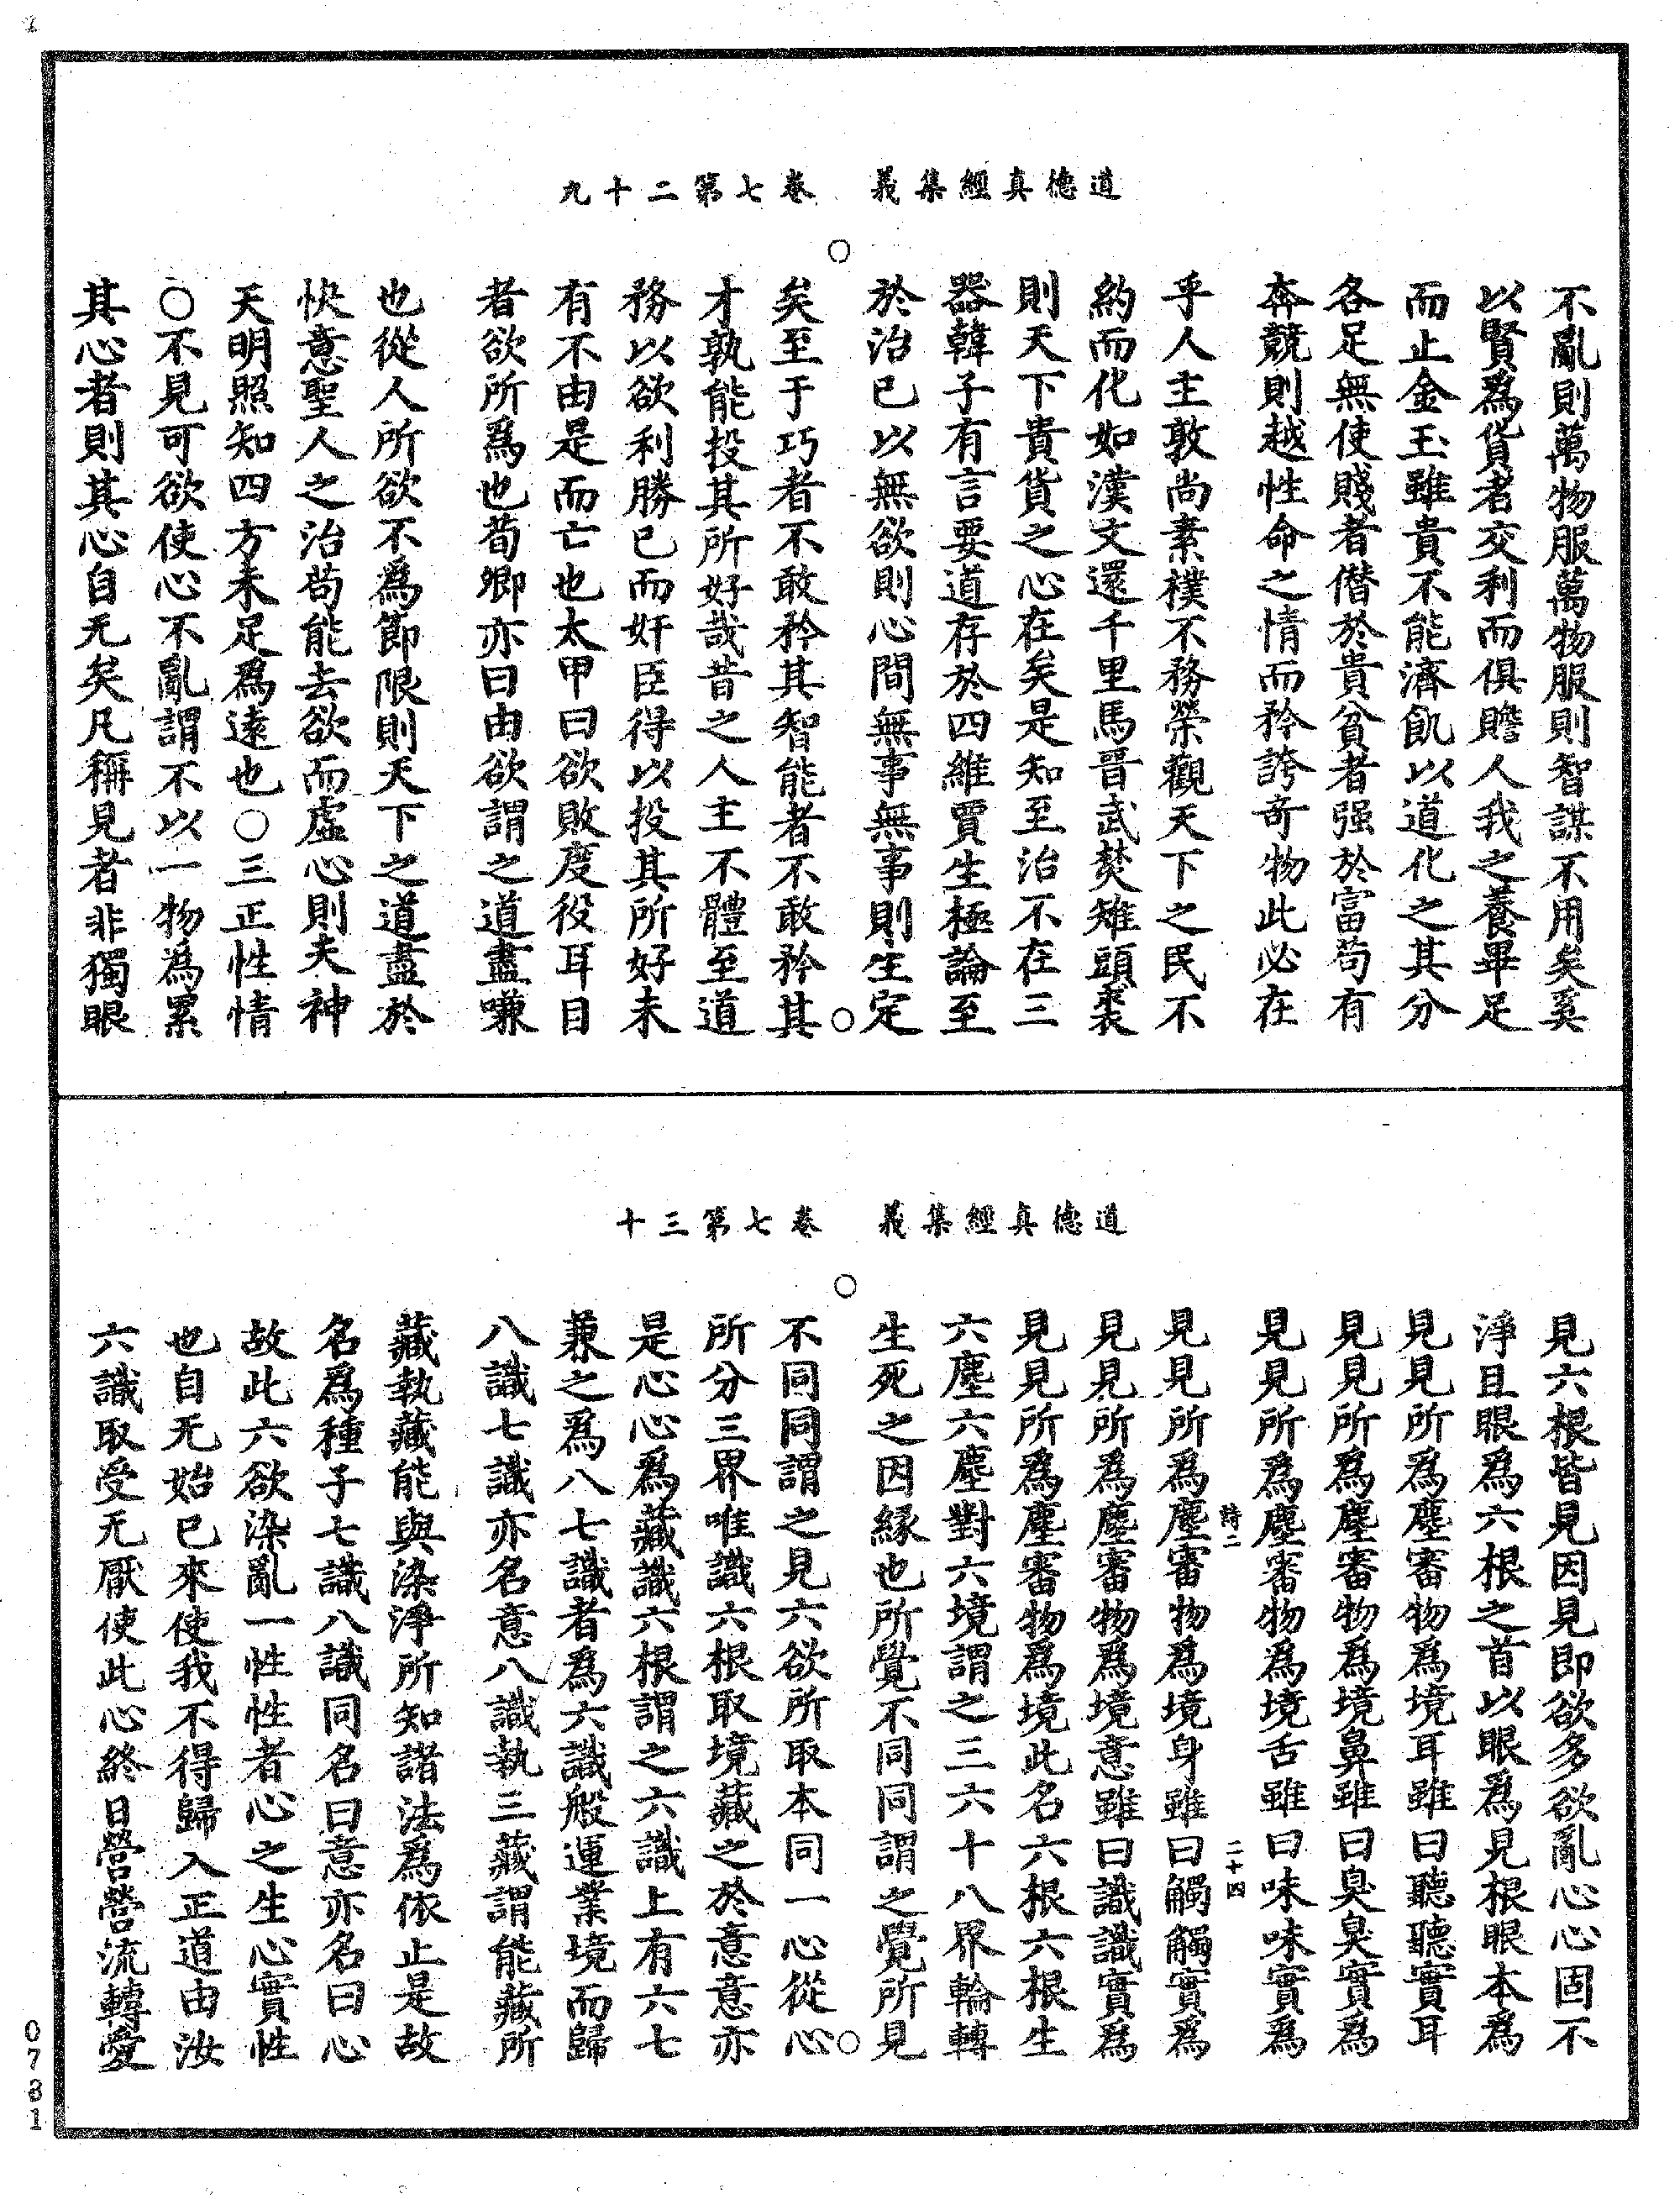 道德真經集義　卷七第二十九
不亂則萬物服萬物服則智謀不用矣奚
以賢爲貨者交利而俱贍人我之養畢足
而止金玉雖貴不能濟飢以道化之其分
各足無使賤者僭於貴貧者强於富苟有
奔競則越性命之情而矜誇奇物此必在
乎人主敦尚素樸不務榮觀天下之民不
約而化如漢文還千里馬晋武焚雉頭裘
則天下貴貨之心在矣是知至治不在三
器韓子有言要道存於四維賈生極論至
於治已以無欲則心間無事無事則生定
○
○
矣至于巧者不敢矜其智能者不敢矜其
才孰能投其所好哉昔之人主不體至道
務以欲利勝已而奸臣得以投其所好未
有不由是而亡也太甲曰欲敗度役耳目
者欲所爲也荀卿亦曰由欲謂之道盡嗛
也從人所欲不爲節限則天下之道盡於
快意聖人之治苟能去欲而虛心則夫神
天明照知四方未足爲遠也○三正性情
○不見可欲使心不亂謂不以一物為累
其心者則其心自无矣凡稱見者非獨眼
道德真經集義　卷七第三十
見六根皆見因見即欲多欲亂心心固不
淨且眼爲六根之首以眼爲見根眼本為
見見所爲塵審物爲境耳雖曰聽聽實耳
見見所為塵審物爲境鼻雖曰臭臭實為
見見所爲塵審物為境舌雖曰味味實爲
詩二　二十四
見見所爲塵審物爲境身雖曰觸觸實爲
見見所為塵審物爲境意雖曰識識實爲
見見所爲塵審物爲境此名六根六根生
六塵六塵對六境謂之三六十八界輪轉
生死之因縁也所覺不同同謂之覺所見
○
○
不同同謂之見六欲所取本同一心從心
所分三界唯識六根取境藏之於意意亦
是心心爲藏識六根謂之六識上有六七
兼之爲八七識者爲六識般運業境而歸
八識七識亦名意八識執三藏謂能藏所
藏執藏能與染淨所知諸法爲依止是故
名爲種子七識八識同名曰意亦名曰心
故此六欲染亂一性性者心之生心實性
也自无始已來使我不得歸入正道由汝
六識取受无厭使此心終日營營流轉愛
0731